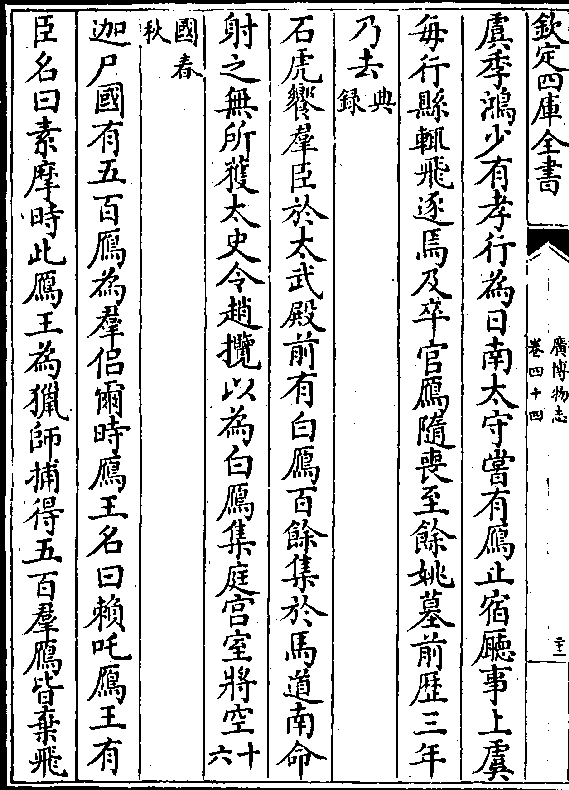 欽定四庫全書
廣博物志
卷四十四
二十一
虞季鴻少有孝行為日南太守嘗有鴈止宿廳事上虞
每行縣輒飛逐焉及卒官鴈隨喪至餘姚墓前歴三年
乃去典録
石虎饗羣臣於太武殿前有白鴈百餘集於馬道南命
射之無所獲太史令趙攬以為白鴈集庭宫室將空十六
國春秋
迦尸國有五百鴈為羣侣爾時鴈王名曰賴吒鴈王有
臣名曰素摩時此鴈王為獵師捕得五百羣鴈皆棄飛